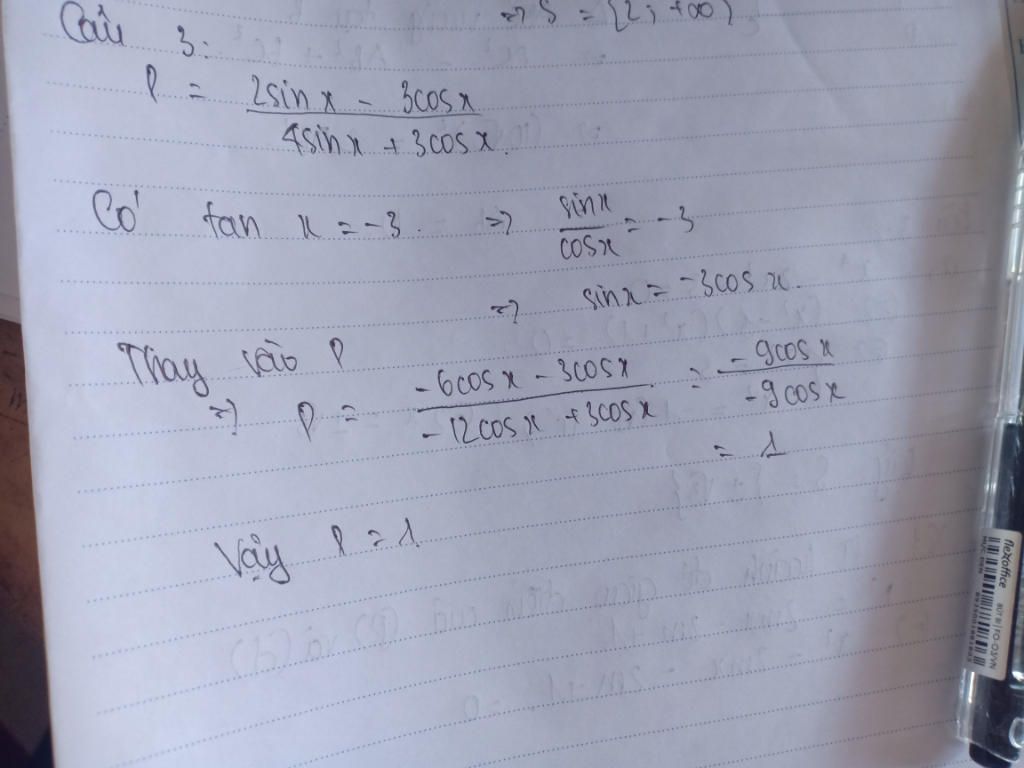 => S = [2; +∞)
Câu 3:
P = (2sin x - 3cos x) / (4sin x + 3cos x).
Có tan x = -3. => sin x / cos x = -3
=> sin x = -3cos x.
Thay vào P
=> P = (-6cos x - 3cos x) / (-12cos x + 3cos x) = -9cos x / -9cos x
= 1
Vậy P = 1
flexoffice